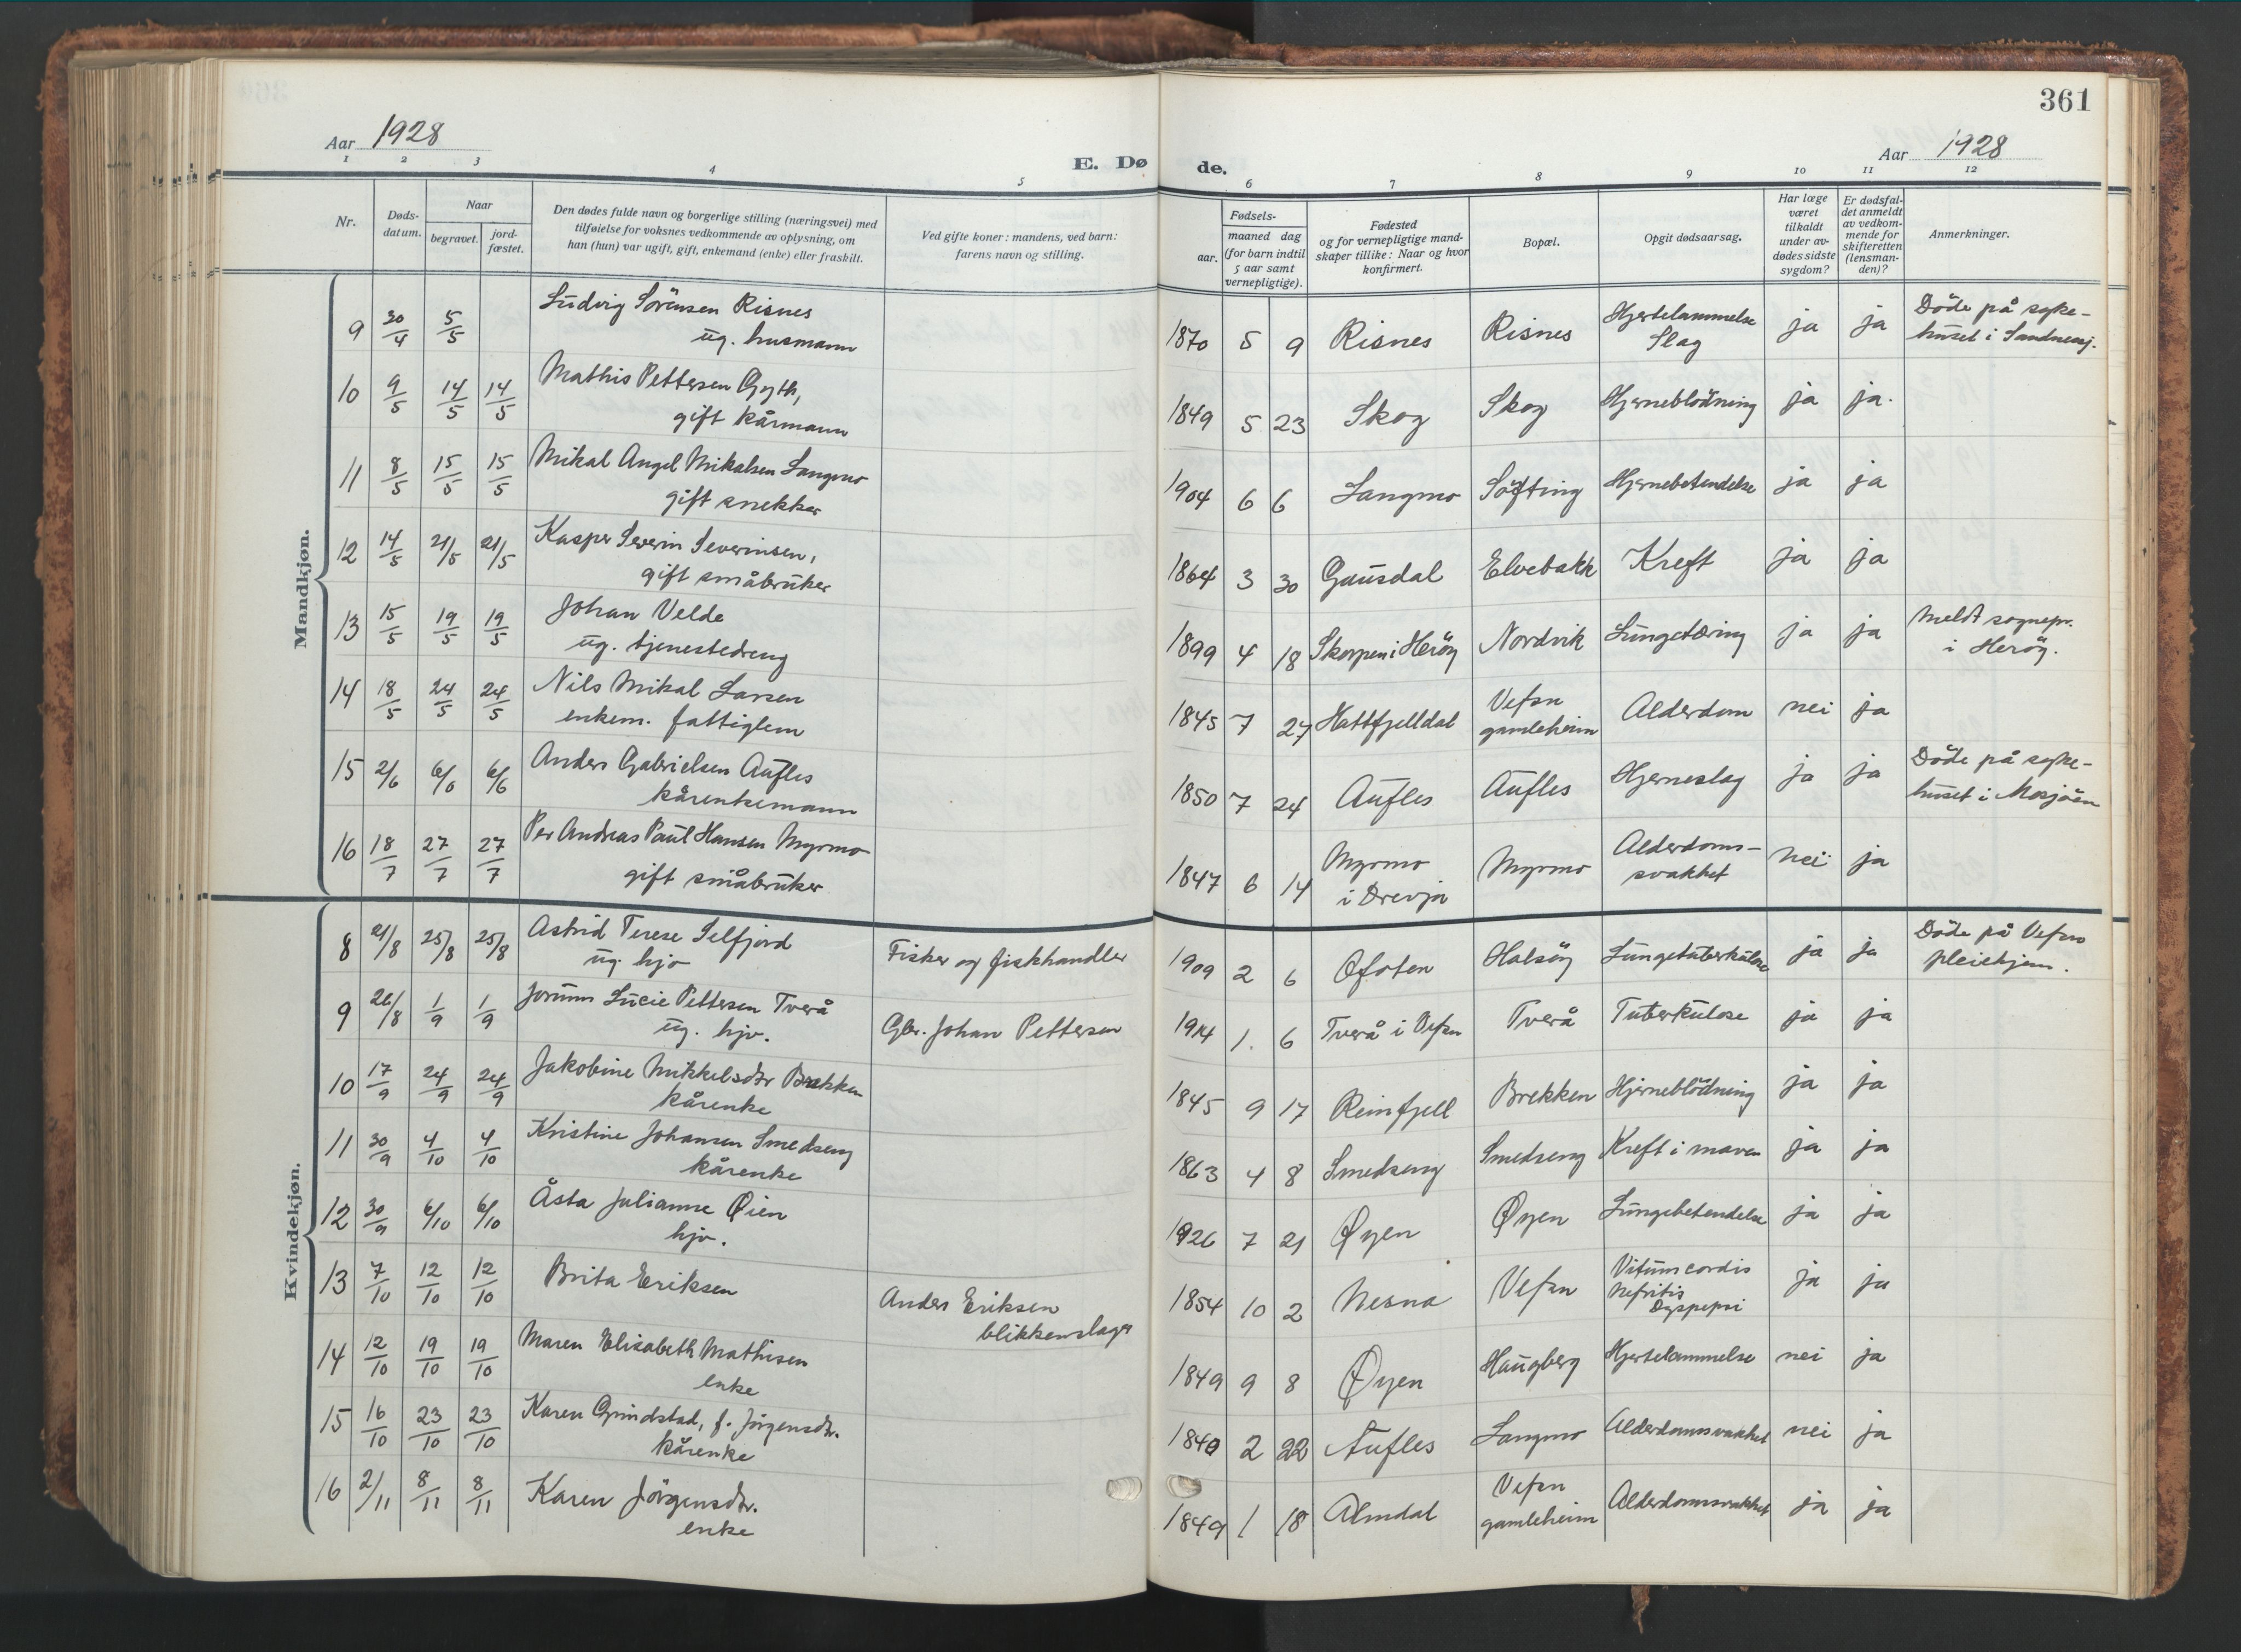 361
Aar 1928
E. Dø
de.
Aar 1928
1 2 3 4 5 6 7 8 9 10 11 12
Nr.
Døds-
datum.
Naar
begravet.
jord-
fæstet.
Den dødes fulde navn og borgerlige stilling (næringsvei) med
tilføielse for voksnes vedkommende av oplysning, om
han (hun) var ugift, gift, enkemand (enke) eller fraskilt.
Ved gifte koner: mandens, ved barn:
farens navn og stilling.
Fødsels-
aar.
maaned dag
(for barn indtil
5 aar samt
vernepligtige).
Fødested
og for vernepligtige mand-
skaper tillike: Naar og hvor
konfirmert.
Bopæl.
Opgit dødsaarsag.
Har læge
været
tilkaldt
under av-
dødes sidste
sygdom?
Er dødsfal-
det anmeldt
av vedkom-
mende for
skifteretten
(lensman-
den)?
Anmerkninger.
Mandkjøn.
9 30/4 5/5 Ludvig Sörensen Risnes
ug. husmann
1870 5 9 Risnes Risnes Hjertelammelse
Slag
ja ja Döde på syke-
huset i Sandnessj.
10 9/5 14/5 14/5 Mathis Pettersen Gyth,
gift kårmann
1849 5 23 Skog Skog Hjerneblödning ja ja.
11 8/5 15/5 15/5 Mikal Angel Mikalsen Langmo
gift snekker
1904 6 6 Langmo Söfting Hjernebetendelse ja ja
12 14/5 21/5 21/5 Kasper Severin Severinsen,
gift småbruker
1864 3 30 Gausdal Elvebakk Kreft ja ja
13 15/5 19/5 19/5 Johan Velde
ug. tjenestedreng
1899 4 18 Skorpen i Heröy Nordvik Lungetæring ja ja meldt sognepr.
i Heröy.
14 18/5 24/5 24/5 Nils Mikal Larsen
enkem. fattiglem
1845 7 27 Hattfjelldal Vefsn
gamleheim
Alderdom nei ja
15 2/6 6/6 6/6 Anders Gabrielsen Aufles
kårenkemann
1850 7 24 Aufles Aufles Hjerneslag ja ja Döde på syke-
huset i Mosjöen
16 18/7 27/7 27/7 Per Andreas Paul Hansen Myrmo
gift småbruker
1847 6 14 Myrmo
i Drevja
Myrmo Alderdoms-
svakhet
nei ja
Kvindekjøn.
8 21/8 25/8 25/8 Astrid Terese Selfjord
ug. hjv
Fisker og fiskhandler
1909 2 6 Ofoten Halsöy Lungetuberkulose ja ja Döde på Vefsn
pleiehjem.
9 26/8 1/9 1/9 Jorunn Lucie Pettersen Tverå
ug. hjv.
Gbr. Johan Pettersen
1914 1. 6 Tverå i Vefsn Tverå Tuberkulose ja ja
10 17/9 24/9 24/9 Jakobine Mikkelsdtr Brekken
kårenke
1845 9 17 Reinfjell Brekken Hjerneblödning ja ja
11 30/9 4/10 4/10 Kristine Johansen Smedseng
kårenke
1863 4 8 Smedseng Smedseng Kreft i maven ja ja
12 30/9 6/10 6/10 Åsta Julianne Øien
hjv.
1926 7 21 Øyen Øyen Lungebetendelse ja ja
13 7/10 12/10 12/10 Brita Eriksen
Anders Eriksen
blikkenslager
1854 10 2 Nesna Vefsn Vitium cordis
Nefritis
Dyspepsi
ja ja
14 12/10 19/10 19/10 Maren Elisabeth Mathisen
enke
1849 9 8 Øyen Haugberg Hjertelammelse nei ja
15 16/10 23/10 23/10 Karen Grindstad, f. Jörgensdtr.
kårenke
1840 2 22 Aufles Langmo Alderdomssvakhet nei ja
16 2/11 8/11 8/11 Karen Jörgensdtr.
enke
1849 1 18 Almdal Vefsn
gamleheim
Alderdomssvakhet ja ja